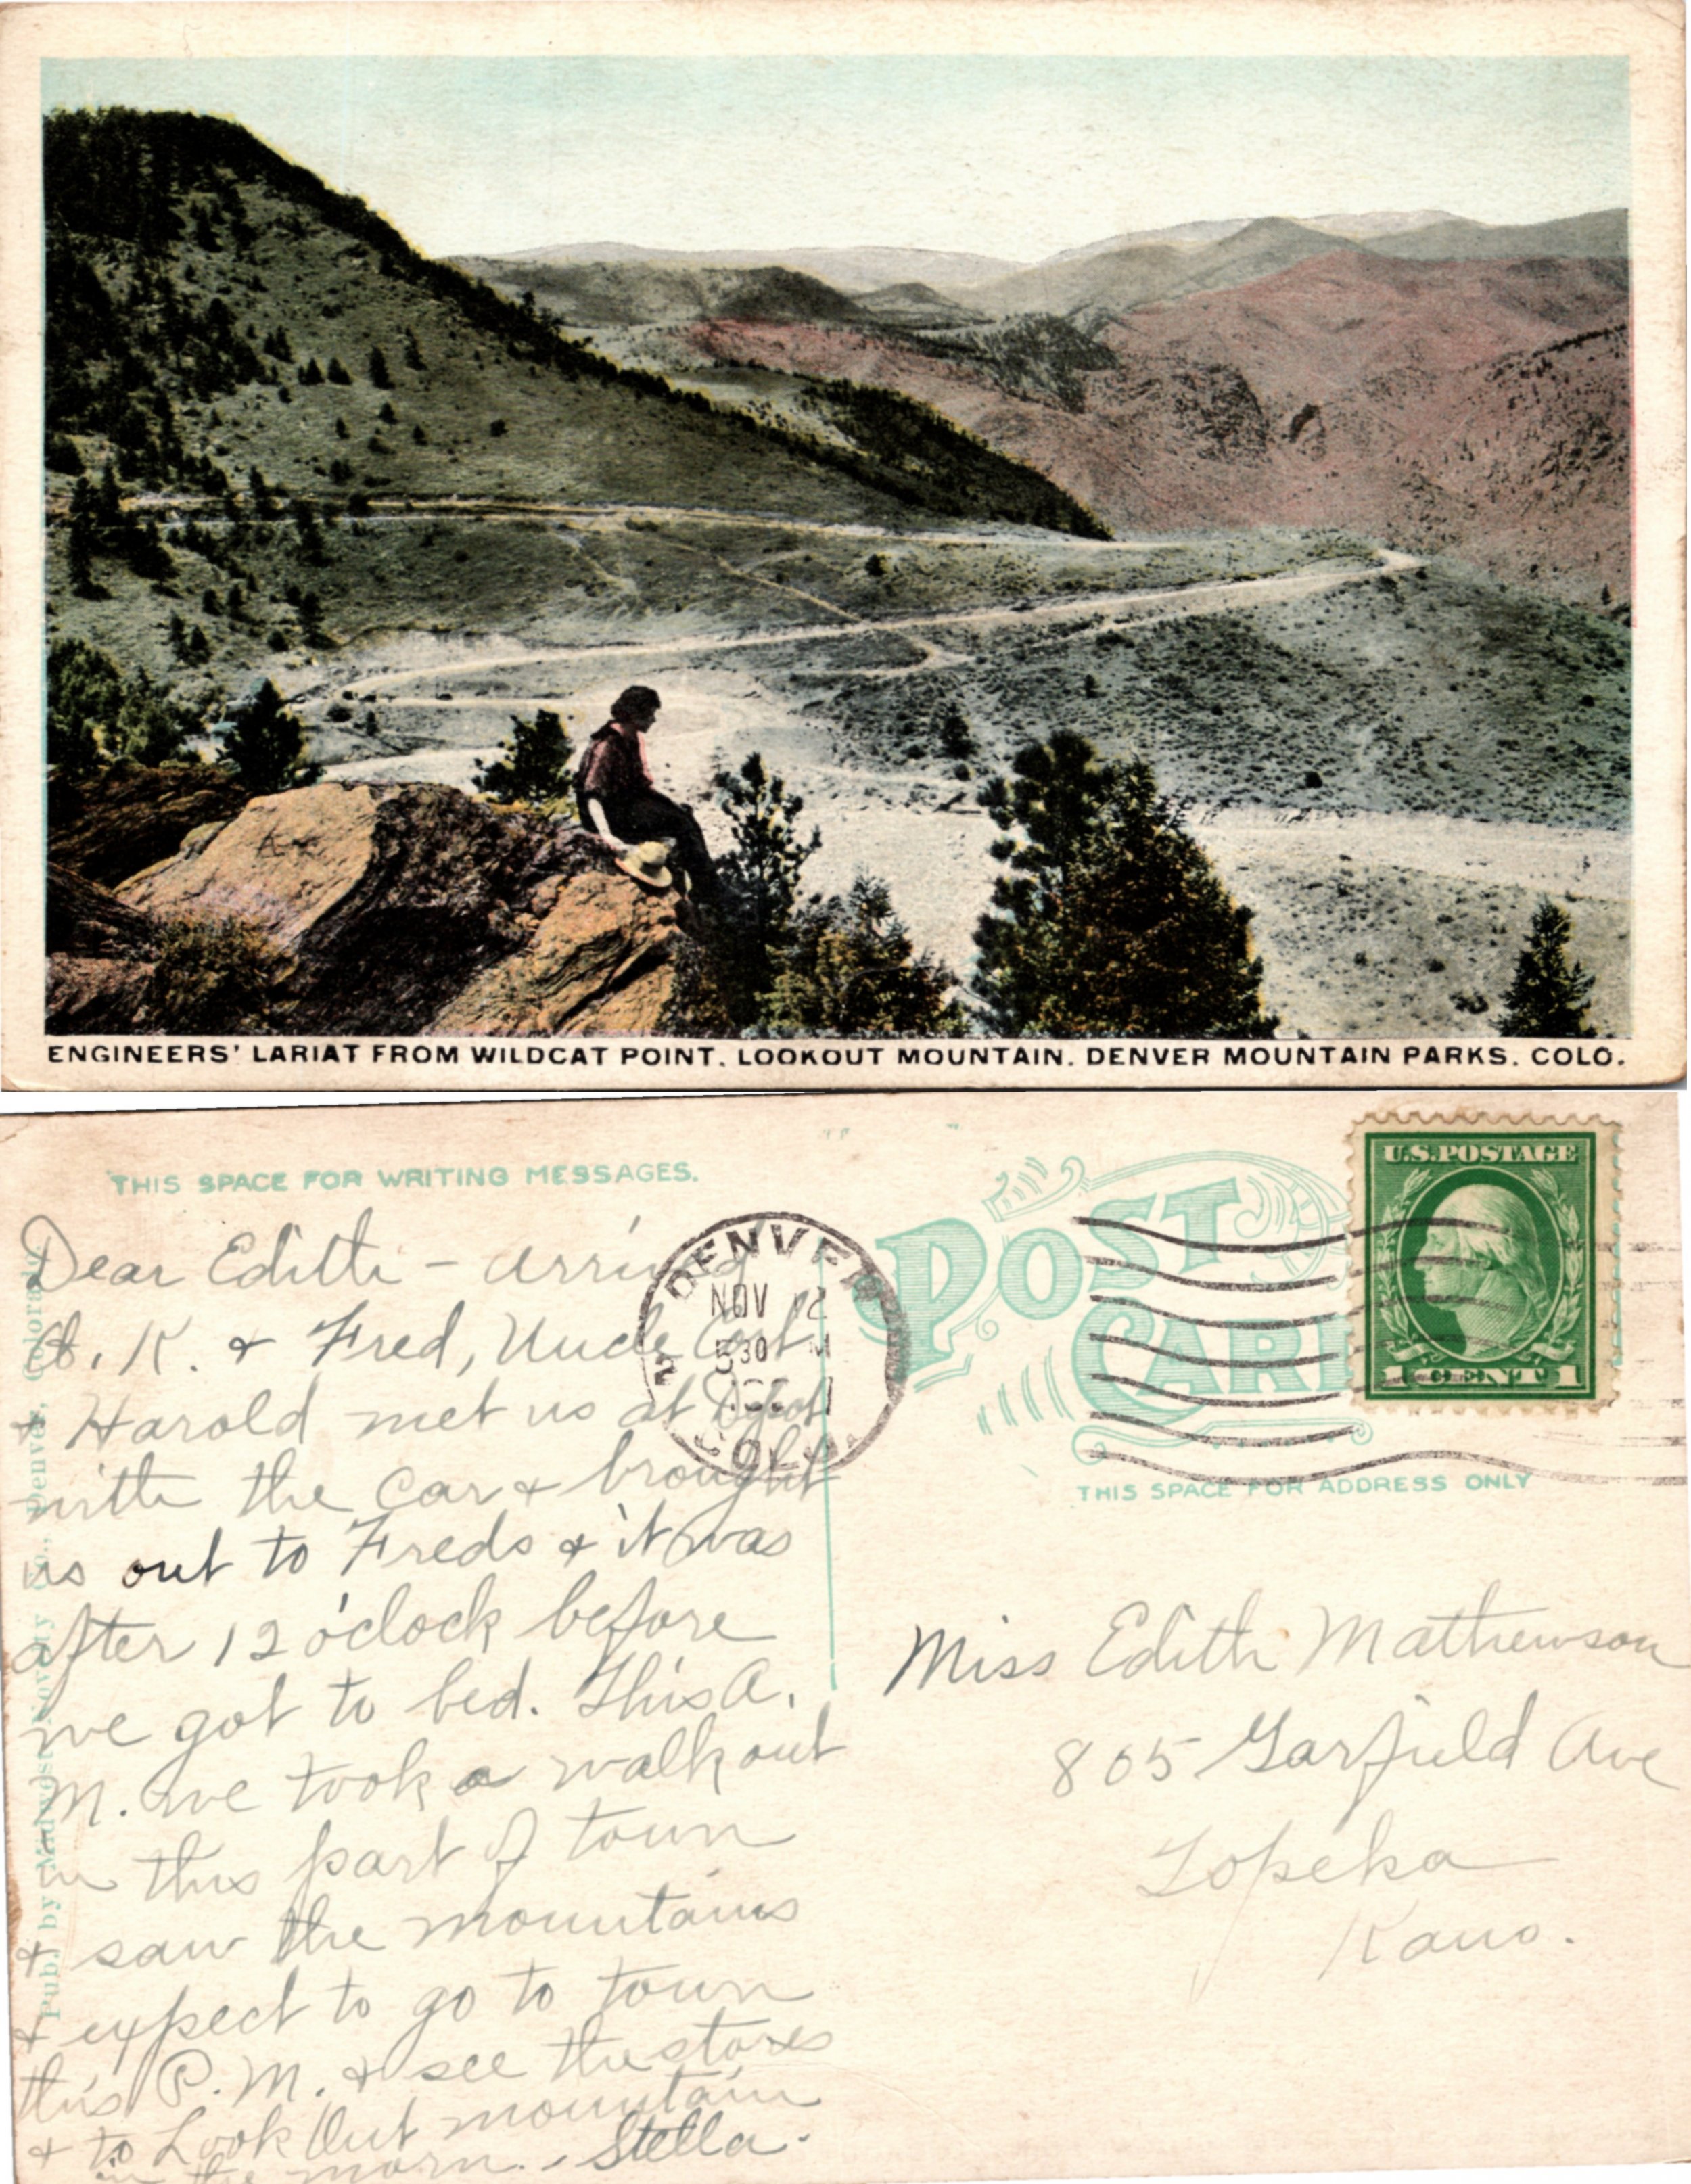 ENGINEERS' LARIAT FROM WILDCAT POINT. LOOKOUT MOUNTAIN. DENVER MOUNTAIN PARKS. COLO.
THIS SPACE FOR WRITING MESSAGES.
Dear Edith - arrived
O. K. & Fred, Uncle
& Harold met us at Depot
with the car & brought
us out to Freds & it was
after 12 o'clock before
we got to bed. This A.
M. we took a walk out
in this part of town
& saw the mountains
& expect to go to town
this P. M. & see the stores
& to Look Out mountain
in the morn. - Stella.
Publ by Midwest Novelty Co., Denver, Colorado
DENVER
NOV 12
530 M
COLO.
POST CARD
U.S. POSTAGE
1 CENT 1
THIS SPACE FOR ADDRESS ONLY
Miss Edith Mathewson
805 Garfield Ave
Topeka
Kans.